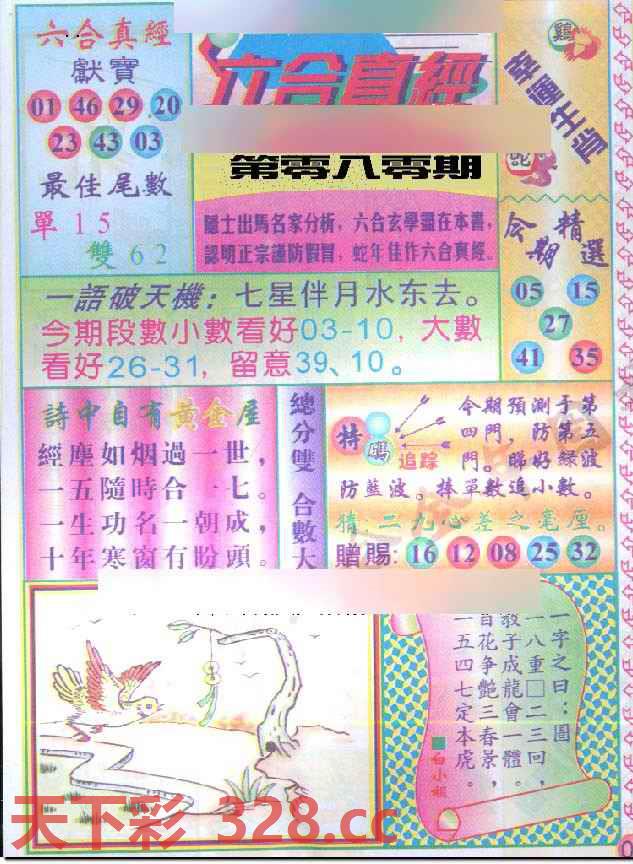 六合真經
獻寶
01 46 29 20
23 43 03
最佳尾數
單 1 5
雙 6 2
六合真經
第零八零期
隱士出馬名家分析，六合玄學盡在本書，
認明正宗謹防假冒，蛇年佳作六合真經。
鷄
蛇
今期精選
05 15
27
41 35
一語破天機：七星伴月水东去。
今期段數小數看好03-10，大數
看好26-31，留意39、10。
詩中自有黃金屋
經塵如烟過一世，
一五隨時合一七。
一生功名一朝成，
十年寒窗有盼頭。
總分雙 合數大
特碼
追踪
今期預測于第
四門，防第五
門。睇好綠波
防藍波。捧單數追小數。
猜:二九心差之毫厘。
贈賜: 16 12 08 25 32
一字之曰：圖
一八重□二三回，
教子成龍會一體。
百花争艷三春景，
一五四七定本虎。
■白小姐
天下彩 328.cc